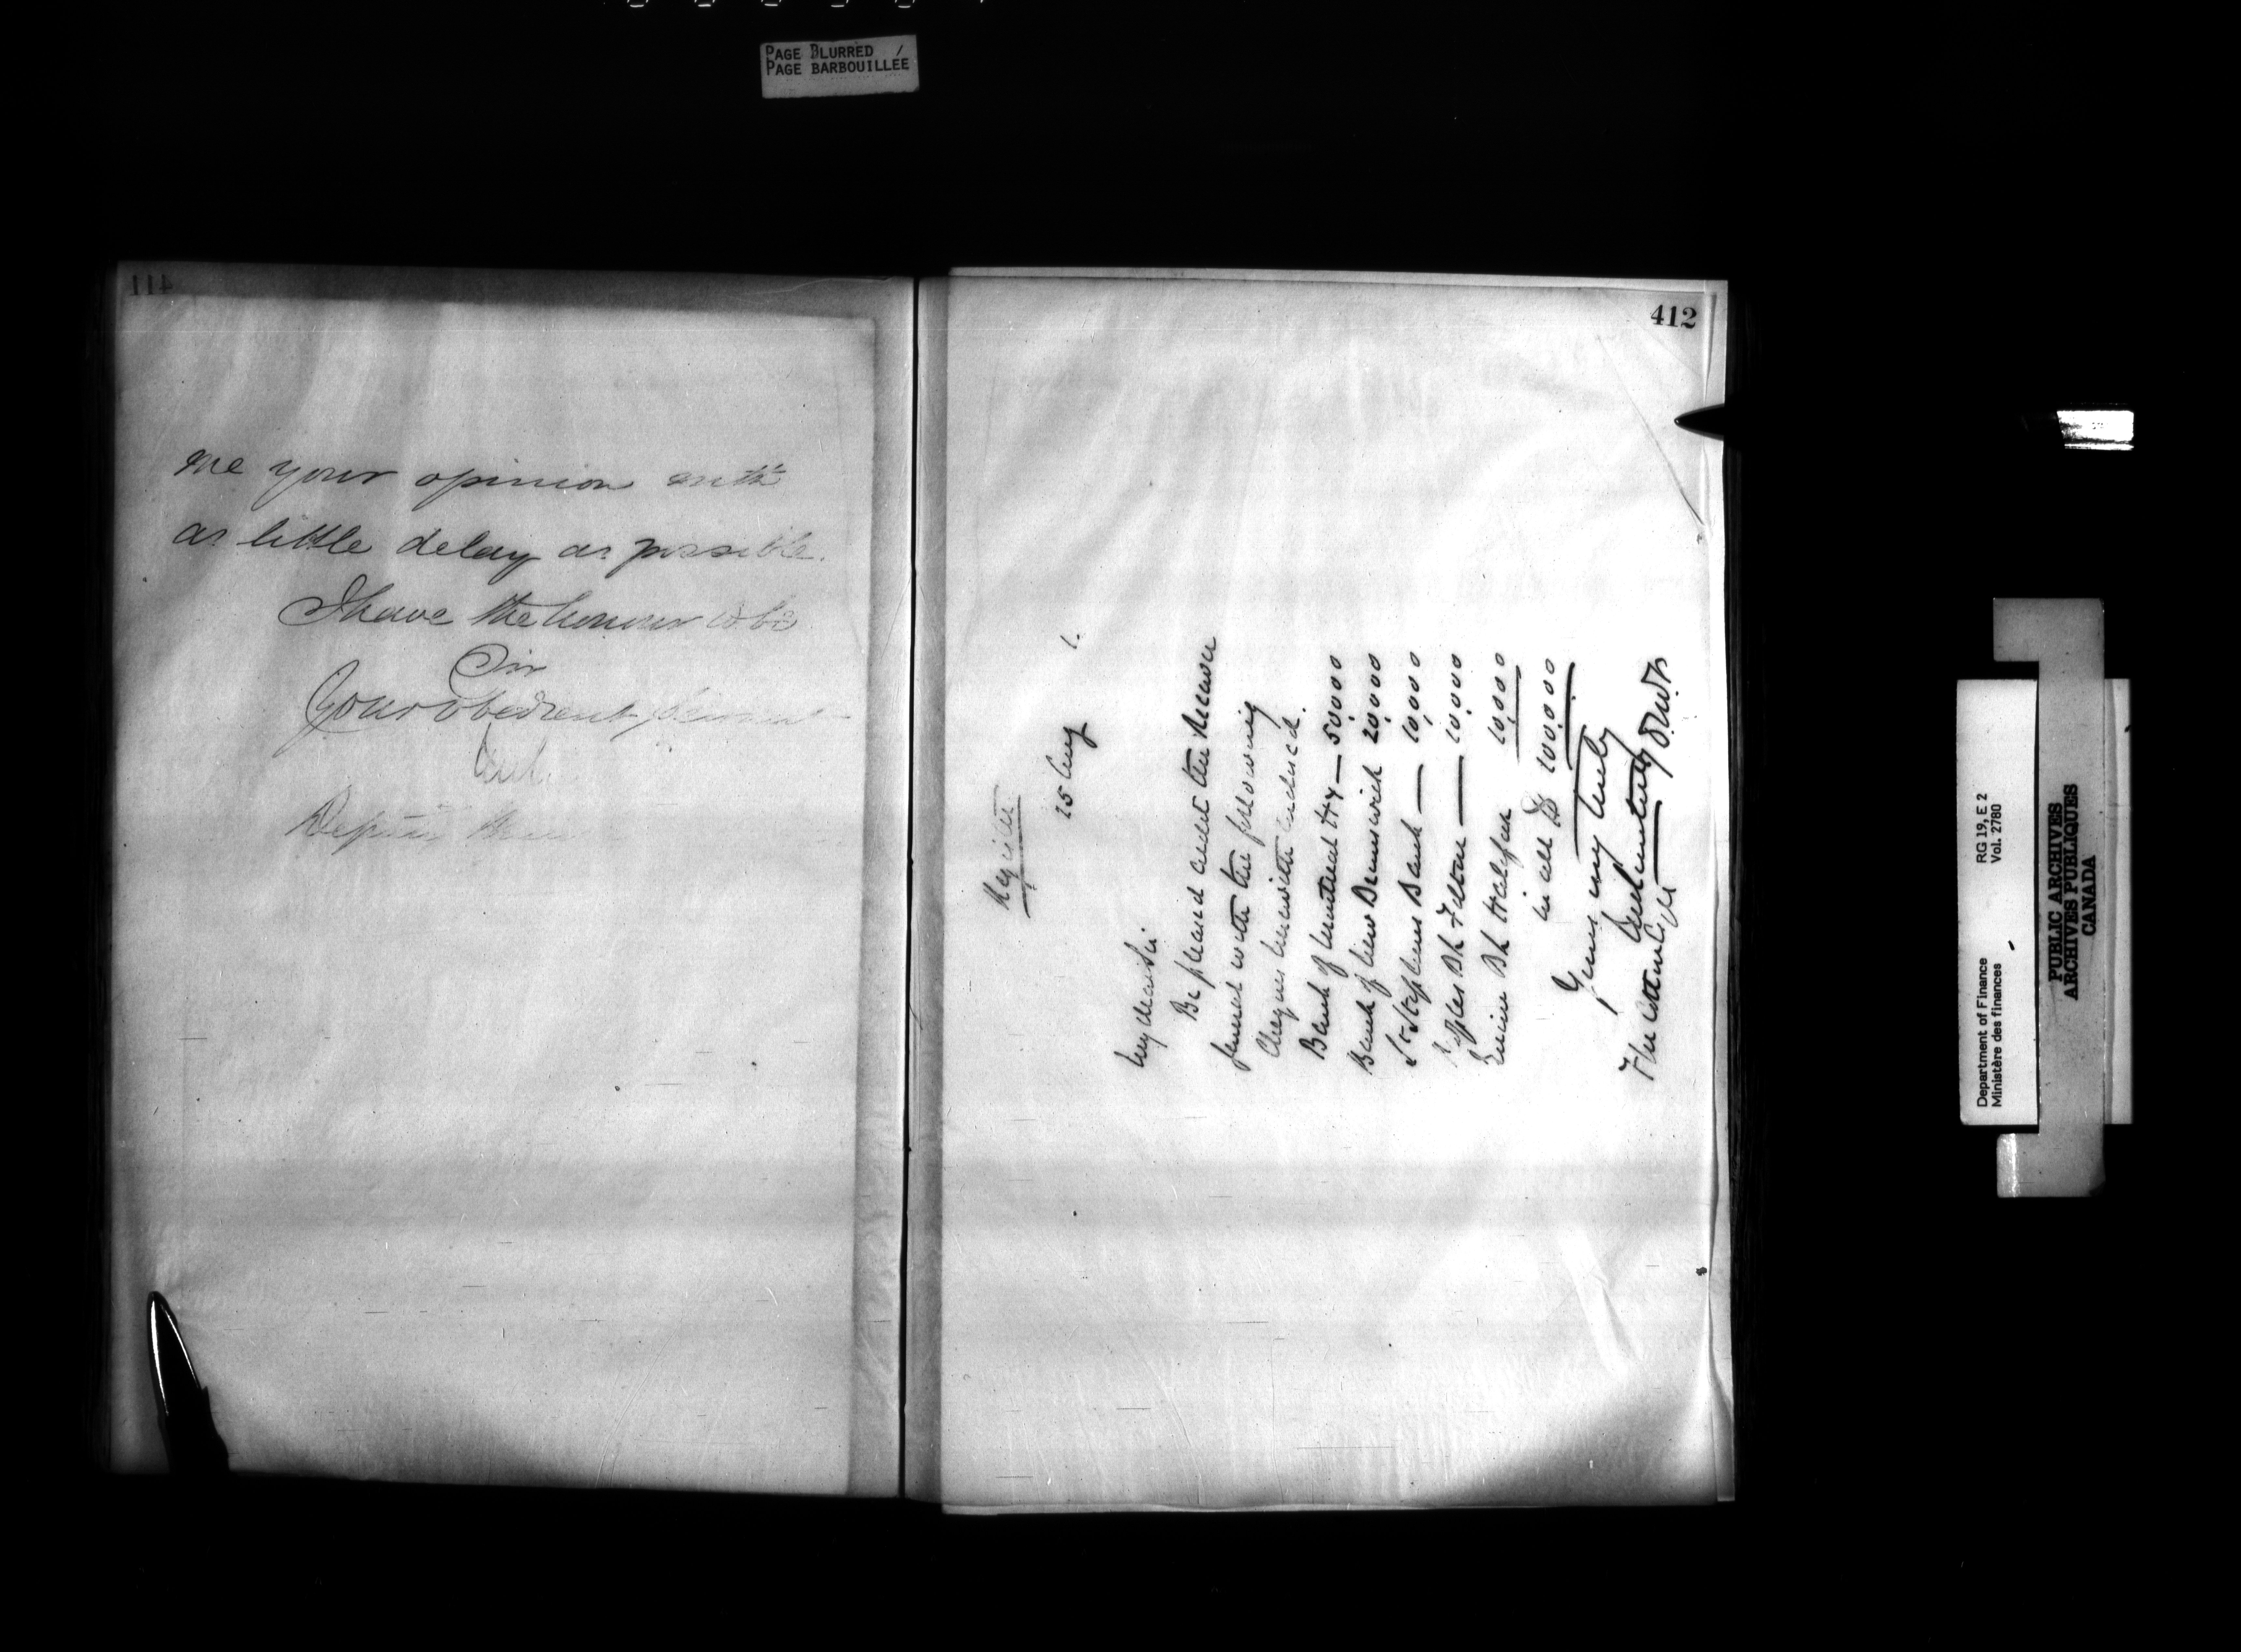 PAGE BLURRED
PAGE BARBOUILLÉE
411
me your opinion with
as little delay as possible.
I have the honour to be
Sir
Your obedient Servant
412
Register
25 Aug
My dear Sir
Be pleased credit the Receiver
General with the following
Cheques herewith enclosed.
Bank of Montreal Hx — 50,000
Bank of New Brunswick 20,000
St Stephens Bank — 10,000
Peoples Bk — 10,000
Union Bk Halifax 10,000
in all $ 100,000
Yours very truly
Department of Finance
Ministère des finances
RG 19, E 2
Vol. 2780
PUBLIC ARCHIVES
ARCHIVES PUBLIQUES
CANADA